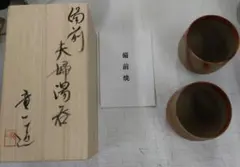 備前
夫婦湯呑
備前焼